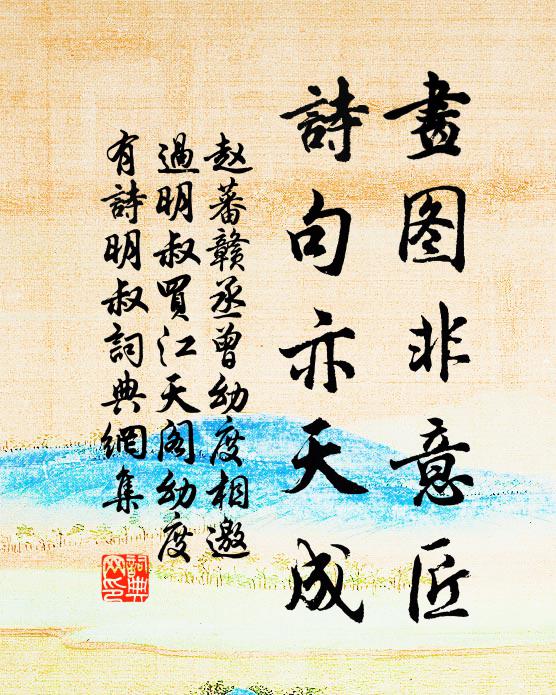 畫图非意匠
詩句亦天成
赵蕃贛丞曾幼度相邀
過明叔買江天阁幼度
有詩明叔詞典網集
詞典
网印